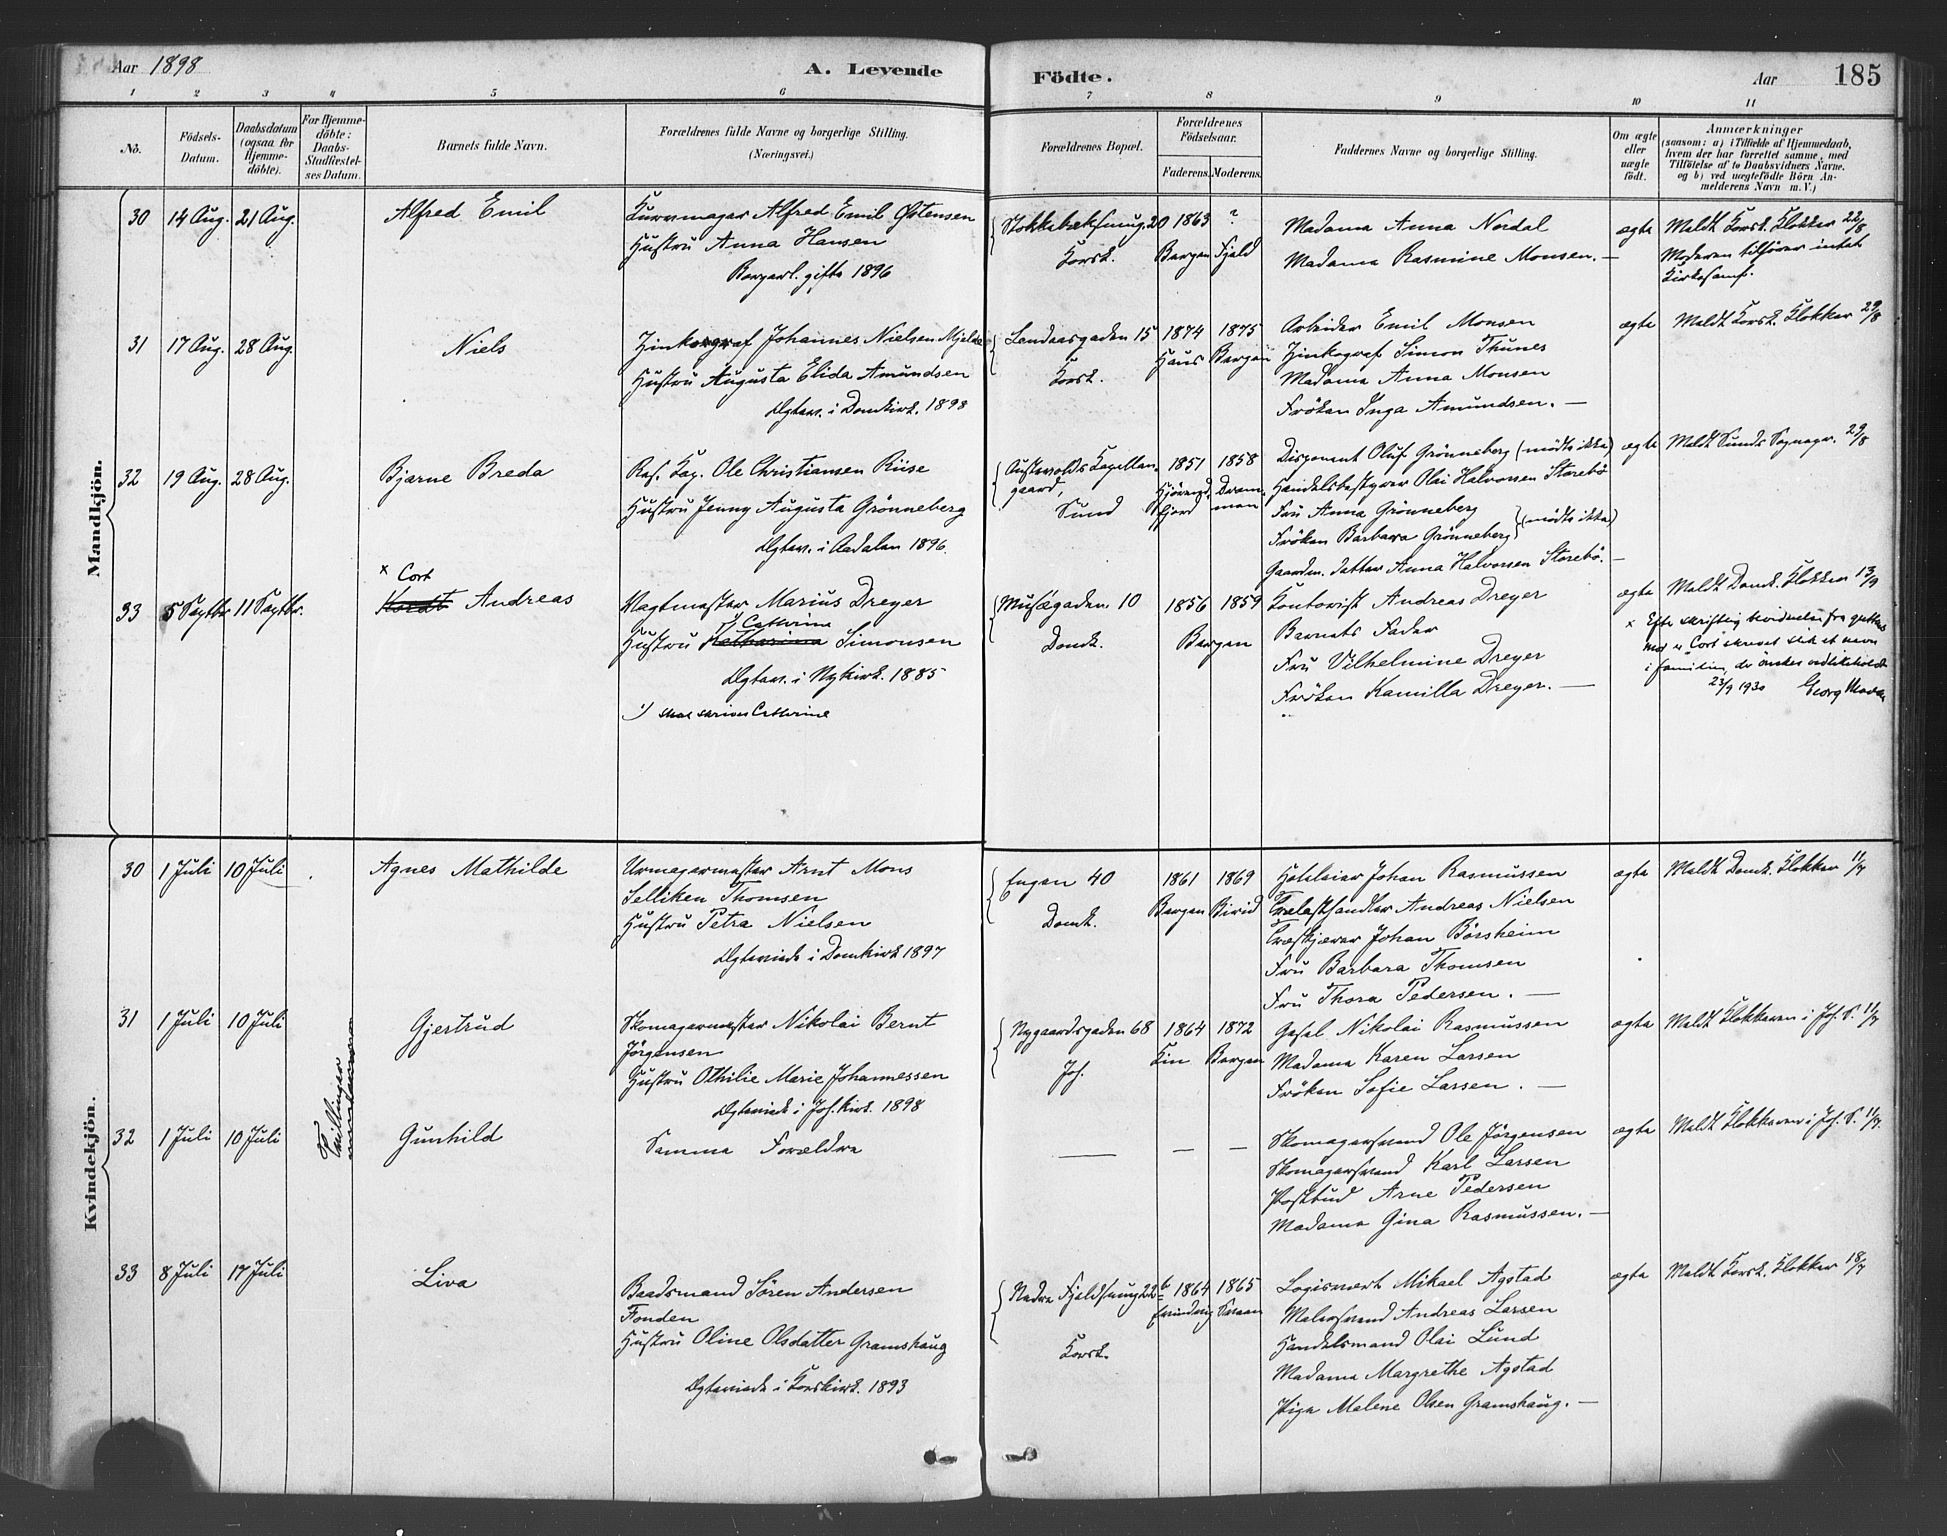 Aar 1898
A. Levende
Födte.
Aar
185
1 2 3 4 5 6 7 8 9 10 11
No.
Födsels-
Datum.
Daabsdatum
(ogsaa for
Hjemme-
döbte).
For Hjemme-
döbte:
Daabs-
Stadfæstel-
ses Datum.
Barnets fulde Navn.
Forældrenes fulde Navne og borgerlige Stilling.
(Næringsvei.)
Forældrenes Bopæl.
Forældrenes
Födselsaar.
Faderens. Moderens.
Faddernes Navne og borgerlige Stilling.
Om ægte
eller
uægte
födt.
Anmærkninger
(saasom: a) i Tilfælde af Hjemmedaab,
hvem der har forrettet samme, med
Tilföielse af to Daabsvidners Navne.
og b) ved uægtefödte Börn An-
melderens Navn m. V.)
Mandkjön.
30 14 Aug. 21 Aug.
Alfred Emil
Kurvmager Alfred Emil Østensen
Hustru Anna Hansen
Borgerl. gifte 1896
Stokkebæksmug. 20
Korsk.
1863 ?
Bergen Fjeld
Madame Anna Nordal
Madame Rasmine Monsen. —
ægte
Meldt Korsk. Klokker 22/8
Moderen tilhører intet
Kirkesamf.
31 17 Aug. 28 Aug.
Niels
Zinkograf Johannes Nielsen Mjelde
Hustru Augusta Elida Amundsen
Ægtev. i Domkirk. 1898
Landaasgaden 15
Korsk.
1874 1875
Haus Bergen
Arbeider Emil Monsen
Zinkograf Simon Thunes
Madame Anna Monsen
Fröken Inga Amundsen. —
ægte
Meldt Korsk. Klokker 29/8
32 19 Aug. 28 Aug.
Bjarne Breda
Res. Kap. Ole Christiansen Riise
Hustru Jenny Augusta Grönneberg
Ægtev. i Aadalen 1896.
Austevolds Kapellan-
gaard,
Sund
1851 1858
Hjörend- Dram-
fjord men
Disponent Oluf Grönneberg (mödte ikke)
Handelsbestyrer Olai Halvorsen Storebö
Fru Anna Grönneberg
Fröken Barbara Grönneberg (mödte ikke)
Gaardm. datter Anna Halvorsen Storebö. —
ægte
Meldt Sunds Sognepr. 29/8
33 5 Septbr. 11 Septbr.
x Cort
Kordt Andreas
Vagtmester Marius Dreyer
1) Cathrine
Hustru Katharina Simonsen
Ægtev. i Nykirk. 1885
1) skal skrives Cathrine
Muségaden 10
Domk.
1856 1859
Bergen
Kontorist Andreas Dreyer
Barnets Fader
Fru Vilhelmine Dreyer
Fröken Kamilla Dreyer. —
ægte
Meldt Domk. Klokker 13/9
x Efter skriftlig bevidnelse fra
"Cort" skrevet slik et navn
i familien, der ønskes vedlikeholdt
23/9 1930 Georg
Kvindekjön.
30 1 Juli 10 Juli
Agnes Mathilde
Urmagermester Arnt Mons
Selliken Thomsen
Hustru Petra Nielsen
Ægteviede i Domkirk 1897
Engen 40
Domk.
1861 1869
Bergen Birid
Hoteleier Johan Rasmussen
Trælasthandler Andreas Nielsen
Træskjærer Johan Börsheim
Fru Barbara Thomsen
Fru Thora Pedersen. —
ægte
Meldt Domk. Klokker 11/7
31 1 Juli 10 Juli
Gjertrud
Skomagermester Nikolai Bernt
Jörgensen
Hustru Othilie Marie Johannessen
Ægteviede i Joh. kirk. 1898
Nygaardsgaden 68
Joh.
1864 1872
Kin Bergen
Gesel Nikolai Rasmussen
Madame Karen Larsen
Fröken Sofie Larsen. —
ægte
Meldt Klokkeren i Joh. S. 11/7
Tvillinger
32 1 Juli 10 Juli
Gunhild
Samme Forældre
— — —
Skomagersvend Ole Jörgensen
Skomagersvend Karl Larsen
Postbud Arne Pedersen
Madame Gina Rasmussen. —
ægte
Meldt Klokkeren i Joh. S. 11/7.
33 8 Juli 17 Juli
Liva
Baadsmand Sören Andersen
Fonden
Hustru Oline Olsdatter Gramshaug
Ægteviede i Korskirk. 1893
Nedre Fjeldsmug 22b
Korsk.
1864 1865
Evindvig
Logisvert Mikael Agstad
Malersvend Andreas Larsen
Handelsmand Olai Lund
Madame Margrethe Agstad
Pige Malene Olsen Gramshaug. —
ægte
Meldt Korsk. Klokker 18/7